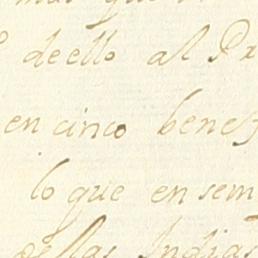 mas que
deello al Pr
en cinco benef
lo que en sem
de las Indias